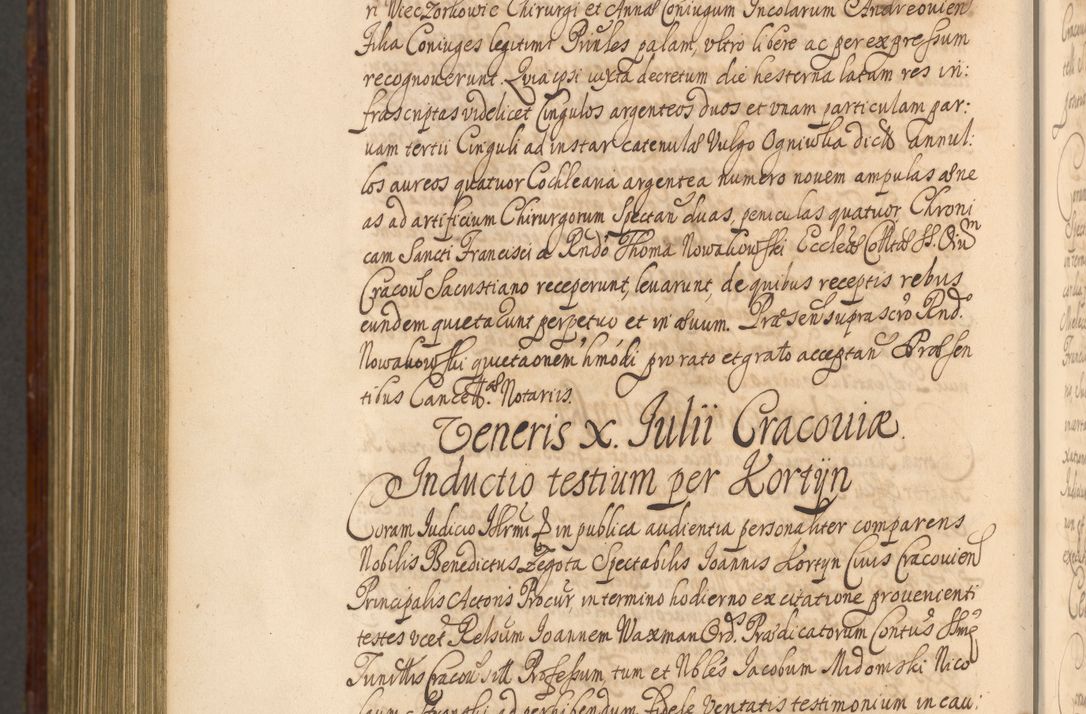 ri Wieczorkowic Chirurgi et Annæ Coniugum Incolarum Andreovien
Filia Coniuges legitimi Prnles palam, vltro libere ac per expressum
recognouerunt. Quia ipsi iuxta decretum die hesterna latum res in:
frascriptas videlicet Cingulos argenteos duos et vnam particulam par:
uam tertii Cinguli ad instar catenulæ Vulgo Ogniwka dictæ Annul:
los aureos quatuor Cochlearia argentea numero nouem ampulas æne
as ad artificium Chirurgorum Spectan duas, peniculas quatuor Chroni
cam Sancti Francisci a Rndo Thoma Nowakowski Ecclæ
Cracou Sacristiano receperunt, leuarunt, de quibus receptis rebus
eundem quietacunt perpetuo et in æuum. Præsen suprascro Rnd.
Nowakowski quietaonem hmodi pro rato et grato acceptan Præsen
tibus Cancell. Notariis.
Veneris X. Julii Cracouiæ.
Inductio testium per Kortyn
Coram Iudicio Illrmi in publica audientia personaliter comparens
Nobilis Benedictus Zegota Spectabilis Ioannis Kortyn Ciuis Cracouien
Principalis Actoris Procur, in termino hodierno ex citatione prouenienti
testes vcet Relsum Ioannem Waxman Ord. Prædicatorum Contus
Cracou Professum, tum et Nbles Iacobum Midomski Nico
ad perhibendum fidele Veritatis testimonium in cau: